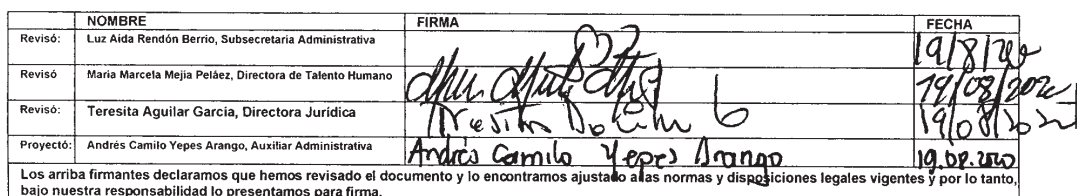 NOMBRE FIRMA FECHA
Revisó: Luz Aida Rendón Berrio, Subsecretaria Administrativa 19/8/20
Revisó Maria Marcela Mejia Peláez, Directora de Talento Humano 19/08/202
Revisó: Teresita Aguilar García, Directora Jurídica Teresita 19/08/202
Proyectó: Andrés Camilo Yepes Arango, Auxiliar Administrativa Andrés Camilo Yepes Arango 19.08.2020
Los arriba firmantes declaramos que hemos revisado el documento y lo encontramos ajustado a las normas y disposiciones legales vigentes y por lo tanto,
bajo nuestra responsabilidad lo presentamos para firma.